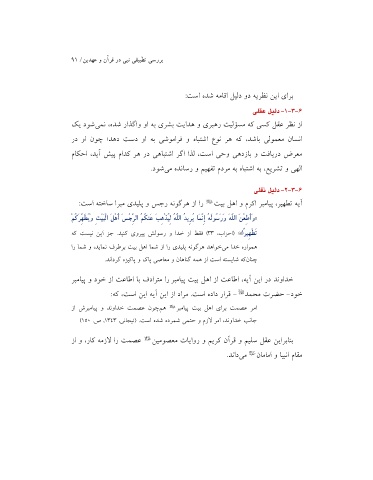 بررسی تطبیقی نبی در قرآن و عهدین / ۹۱
برای این نظریه دو دلیل اقامه شده است:
۶-۳-۱- دلیل عقلی
از نظر عقل کسی که مسؤلیت رهبری و هدایت بشری به او واگذار شده، نمی‌شود یک
انسان معمولی باشد، که هر نوع اشتباه و فراموشی به او دست دهد؛ چون او در
معرض دریافت و بازدهی وحی است، لذا اگر اشتباهی در هر کدام پیش آید، احکام
الهی و تشریع، به اشتباه به مردم تفهیم و رسانده می‌شود.
۶-۳-۲- دلیل نقلی
آیه تطهیر، پیامبر اکرم و اهل بیت را از هرگونه رجس و پلیدی مبرا ساخته است:
«وَأَطِعْنَ اللَّهَ وَرَسُولَهُ إِنَّمَا يُرِيدُ اللَّهُ لِيُذْهِبَ عَنكُمُ الرِّجْسَ أَهْلَ الْبَيْتِ وَيُطَهِّرَكُمْ
تَطْهِيرًا» (احزاب، ۳۳) فقط از خدا و رسولش پیروی کنید. جز این نیست که
همواره خدا می‌خواهد هرگونه پلیدی را از شما اهل بیت برطرف نماید، و شما را
چنان‌که شایسته است از همه گناهان و معاصی پاک و پاکیزه گرداند.
خداوند در این آیه، اطاعت از اهل بیت پیامبر را مترادف با اطاعت از خود و پیامبر
خود- حضرت محمد - قرار داده است. مراد از این آیه این است، که:
امر عصمت برای اهل بیت پیامبر هم‌چون عصمت خداوند و پیامبرش از
جانب خداوند، امر لازم و حتمی شمرده شده است. (تیجانی، ۱۳۷۳، ص. ۱۵۰)
بنابراین عقل سلیم و قرآن کریم و روایات معصومین عصمت را لازمه کار، و از
مقام انبیا و امامان می‌داند.